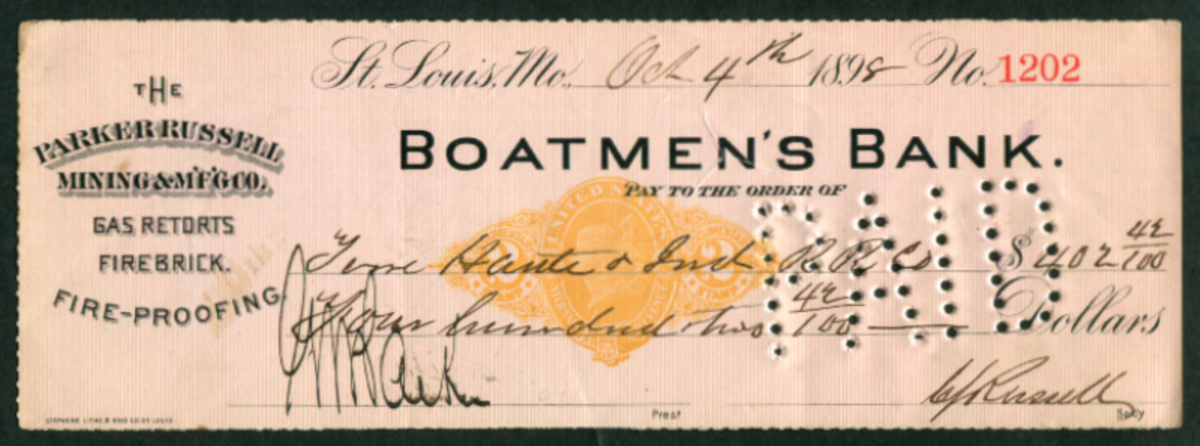 St. Louis, Mo., Oct 4th 1898 No. 1202
THE
PARKER RUSSELL
MINING & M'F'G CO.
GAS RETORTS
FIREBRICK.
FIRE-PROOFING
BOATMEN'S BANK.
PAY TO THE ORDER OF
UNITED STATES
2 2
PAID
Terre Haute & Ind R. R. Co $ 402 42/100
Four hundred two 42/100 Dollars
Parker
Prest
Russell
Secy